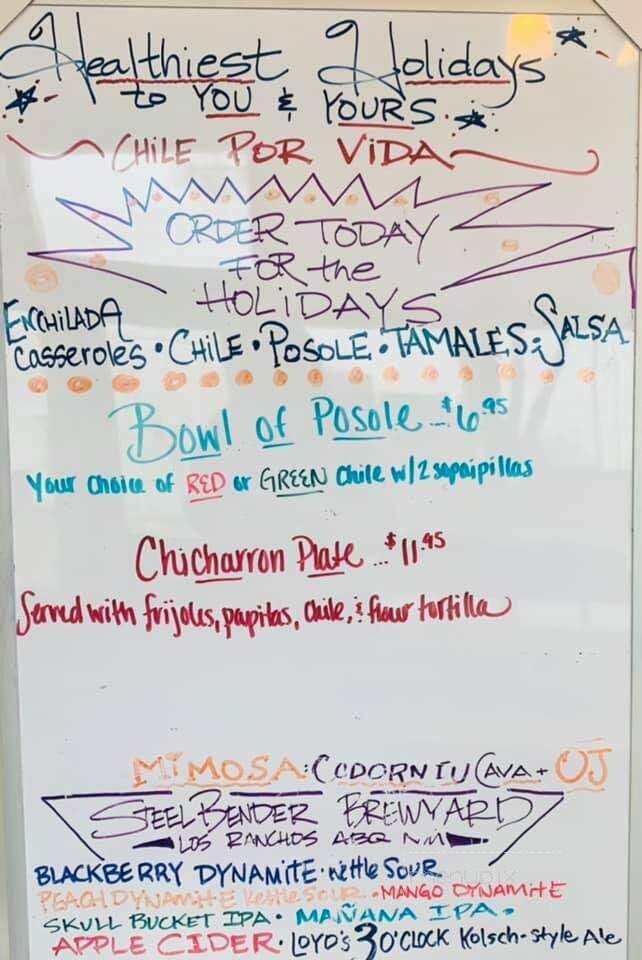 Healthiest Holidays
to YOU & YOURS.
CHILE POR VIDA
ORDER TODAY
FOR the
HOLIDAYS
ENCHILADA
Casseroles • CHILE • POSOLE • TAMALES • SALSA
Bowl of Posole ... $6.95
Your Choice of RED or GREEN Chile w/2 sopaipillas
Chicharron Plate ... $11.95
Served with frijoles, papitas, chile, & flour tortilla
MIMOSA: CODORNIU CAVA + OJ
STEEL BENDER BREWYARD
LOS RANCHOS ABQ NM
BLACKBERRY DYNAMITE • Kettle SOUR
PEACH DYNAMITE Kettle SOUR • MANGO DYNAMITE
SKULL BUCKET IPA • MAÑANA IPA •
APPLE CIDER • LOYD'S 3 O'CLOCK Kolsch-Style Ale